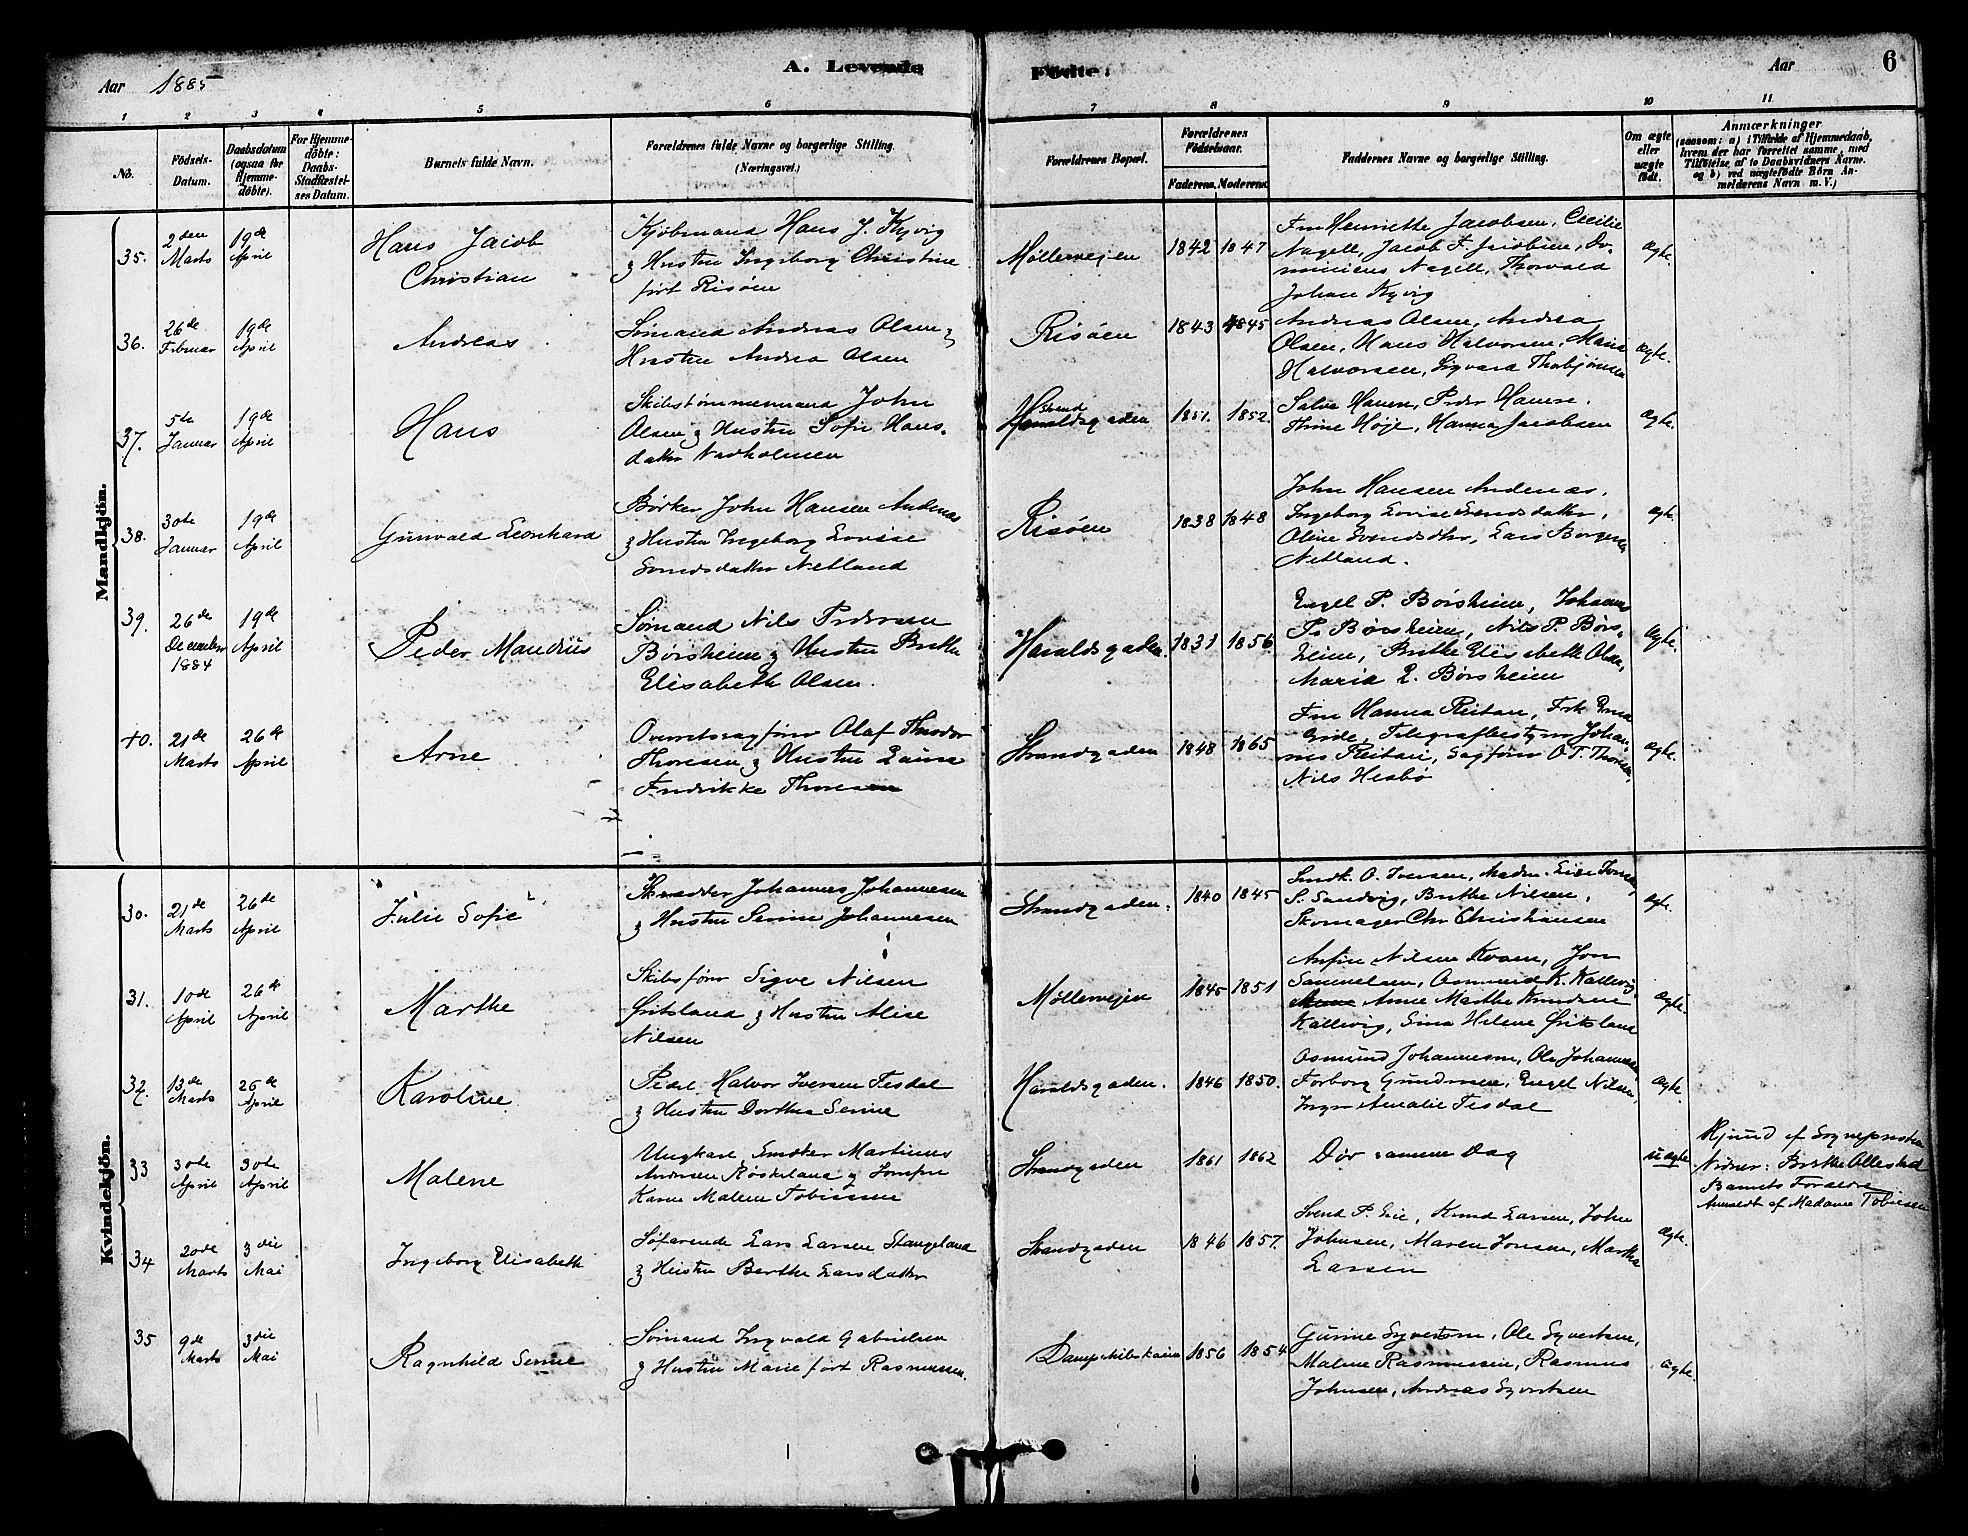 Aar 1885
A. Levende
Fødte.
Aar
6
1 2 3 4 5 6 7 8 9 10 11
No.
Fødsels-
Datum.
Daabsdatum
(ogsaa for
Hjemme-
døbte).
For Hjemme-
døbte:
Daabs-
Stadfæstel-
ses Datum.
Barnets fulde Navn.
Forældrenes fulde Navne og borgerlige Stilling.
(Næringsvei.)
Forældrenes Bopæl.
Forældrenes
Fødselsaar.
Faderens. Moderens.
Faddernes Navne og borgerlige Stilling.
Om ægte
eller
uægte
født.
Anmærkninger
(saasom: a) i Tilfælde af Hjemmedaab,
hvem der har forrettet samme, med
Tilføielse af to Daabsvidners Navne.
og b) ved uægtefødte Børn An-
melderens Navn m. V.)
Mandkjön.
35. 2den Marts
19de April
Hans Jacob
Christian
Kjøbmand Hans J. Kyvig
& Hustru Ingeborg Christine
født Risøen
Møllerveien
1842 1847
Fru Henriette Jacobsen, Cecilie
Nagell, Jacob F. Jacobsen, Do-
minicus Nagell, Thorvald
Johan Kyvig
Ægte.
36. 26de Februar
19de April
Andreas
Sømand Andreas Olsen &
Hustru Andrea Olsen
Risøen
1843 1845
Andreas Olsen, Andrea
Olsen, Hans Halvorsen, Maria
Halvorsen, Sigvard Thorbjørnsen
ægte.
37. 5te Januar
19de April
Hans
Skibstømmermand John
Olsen & Hustru Sofie Hans-
datter Nadholmen
Strand
Haraldsgaden
1851. 1852.
Salve Hansen, Peder Hansen.
Thrine Høje, Hanna Jacobsen
Ægte.
38. 30te Januar
19de April
Gunvald Leonhard
Bødker John Hansen Andenæs
& Hustru Ingeborg Lovise
Svendsdatter Netland
Risøen
1838 1848
John Hansen Andenæs,
Ingeborg Lovise Svendsdatter,
Oline Svendsdtr, Lars Borgersen
Netland.
ægte.
39. 26de December 1884
19de April
Peder Mandius
Sømand Nils Pedersen
Børsheim & Hustru Berthe
Elisabeth Olsen.
Haraldsgaden.
1831 1856.
Engel P. Børsheim, Johannes
P. Børsheim, Nils P. Børs-
heim, Berthe Elisabeth Olsen,
Maria L. Børsheim
Ægte.
40. 21de Marts
26de April
Arne
Overretssagfører Olaf Theodor
Thoresen & Hustru Laura
Fredrikke Thoresen
Strandgaden
1848 1865
Fru Hanna Reitan, Frk Erna
Gede, Telegrafbestyrer Johan-
nes Reitan, Sagfører O. T. Thoresen,
Nils Hesbø
ægte.
Kvindekjön.
30. 21de Marts
26de April
Julie Sofie
Skrædder Johannes Johannesen
& Hustru Serine Johannesen
Strandgaden.
1840 1845
Smdk. O. Iversen, Madm. Lise Iversen,
S. Sandvig, Berthe Nilsen,
Skomager Chr Christiansen
ægte.
31. 10de April
26de April
Marthe
Skibsfører Sigve Nilsen
Fritsland & Hustru Alise
Nilsen
Møllerveien
1845 1851
Anfin Nilsen Kvam, Jon
Samuelsen, Osmund K. Kallevig,
Anne Marthe Knudsen
Kallevig, Sina Helene Fritsland
ægte.
32. 13de Marts
26de April
Karoline
Pedel Halvor Iversen Tesdal
& Hustru Dorthea Serine
Haraldsgaden.
1846 1850.
Osmund Johannesen, Ole Johannesen
Torborg Gundersen, Engel Nilsen,
Inger Amalie Tesdal
ægte.
33 30te April
30te April
Malene
Ungkarl, Smeker Martinus
Andersen Røskeland & Jomfru
Karen Malene Tobiesen
Strandgaden
1861 1862
Dør samme Dag
uægte
Hjemd. af Sognepresten
Vidner: Berthe Ollestad
Barnets Forældre
Anmeldt af Madame Tobiesen
34 20de Marts
3die Mai
Ingeborg Elisabeth
Søfarende Lars Larsen Stangeland
& Hustru Berthe Larsdatter
Strandgaden
1846 1857.
Svend P. Lie, Knud Larsen, John
Johnsen, Maren Jonsen, Martha
Larsen
ægte.
35 9de Marts
3die Mai
Ragnhild Serine
Sømand Ingvald Gabrielsen
& Hustru Marie født Rasmussen.
Dampskibskaien
1856 1854
Gurine Syversen, Ole Syvertsen,
Malene Rasmussen, Rasmus
Johnsen, Andreas Syvertsen
ægte.